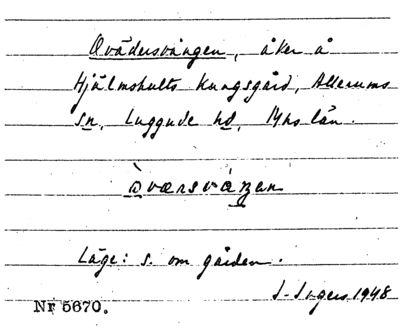 Ovädersvången, åker å
Hjälmshults Kungsgård, Allerums
sn, Luggude hd, Mhs län.
òværsváŋen
Läge: s. om gården.
S-Ingers 1948
Nr 5670.